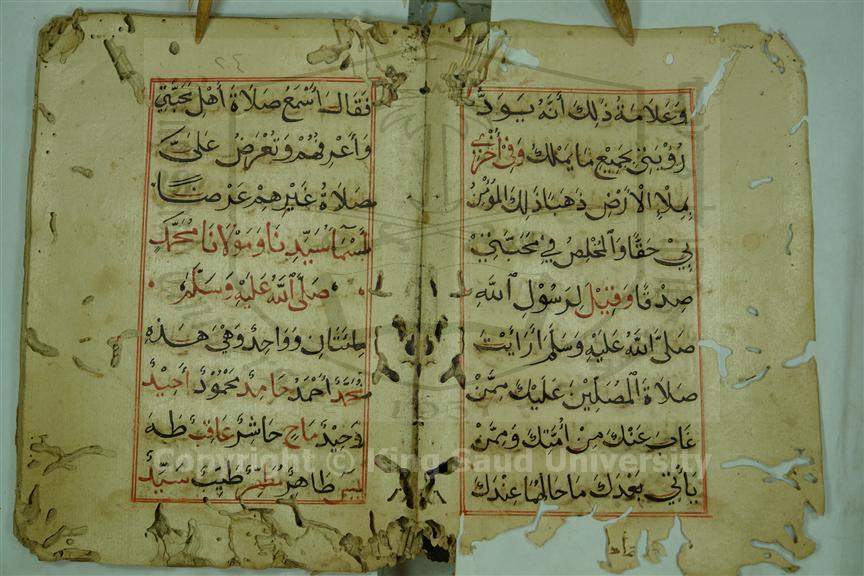 وَعَلَامَةُ ذٰلِكَ أَنَّهُ يَوَدُّ
رُؤْيَتِي بِجَمِيعِ مَا يَمْلِكُ وَفِي أُخْرَى
بِمِلْءِ الْأَرْضِ ذَهَبًا ذَلِكَ الْمُؤْمِنُ
بِي حَقًّا وَالْمُخْلِصُ فِي مَحَبَّتِي
صِدْقًا وَقِيلَ لِرَسُولِ اللَّهِ
صَلَّى اللَّهُ عَلَيْهِ وَسَلَّمَ أَرَأَيْتَ
صَلَاةَ الْمُصَلِّينَ عَلَيْكَ مِمَّنْ
غَابَ عَنْكَ مِنْ أُمَّتِكَ وَمِمَّنْ
يَأْتِي بَعْدَكَ مَا حَالُهُمَا عِنْدَكَ
٢٤
فَقَالَ أَسْمَعُ صَلَاةَ أَهْلِ مَحَبَّتِي
وَأَعْرِفُهُمْ وَتُعْرَضُ عَلَيَّ
صَلَاةُ غَيْرِهِمْ عَرْضًا
أَسْمَاءُ سَيِّدِنَا وَمَوْلَانَا مُحَمَّدٍ
صَلَّى اللَّهُ عَلَيْهِ وَسَلَّمَ
مِائَتَانِ وَوَاحِدٌ وَهِيَ هَذِهِ
مُحَمَّدٌ أَحْمَدُ حَامِدٌ مَحْمُودٌ أَحِيدٌ
وَحِيدٌ مَاحٍ حَاشِرٌ عَاقِبٌ طه
يس طَاهِرٌ مُطَهَّرٌ طَيِّبٌ سَيِّدٌ
Copyright © King Saud University
1957